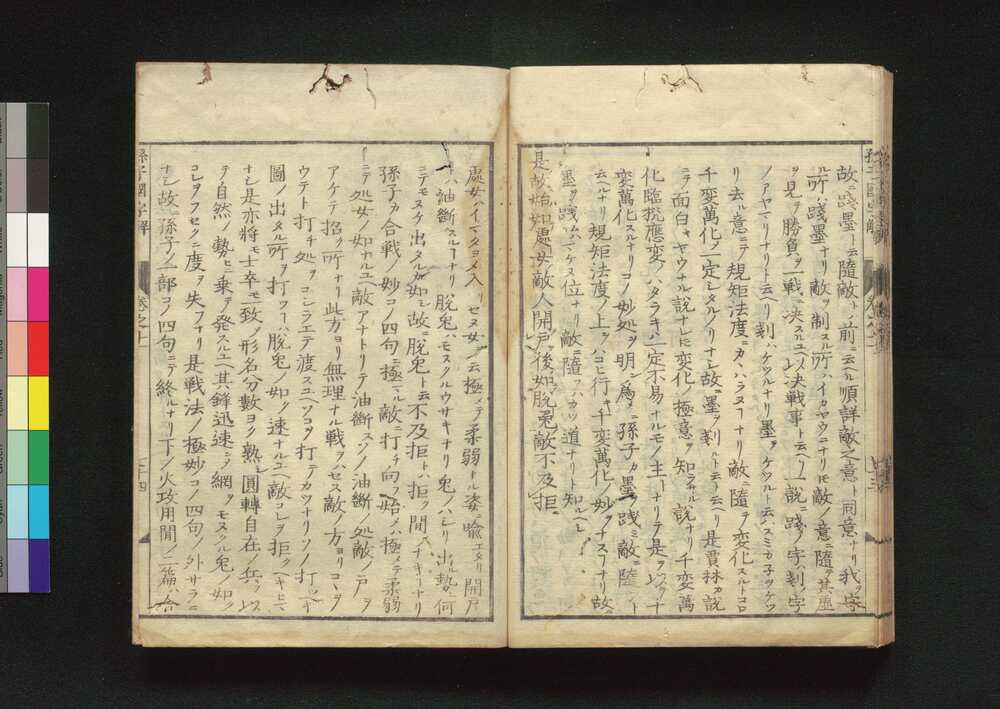 故ニ踐墨ト云隨敵ト前ニ云ヘル順詳敵之意ト同意ナリ我ヲ守
ル所ハ踐墨ナリ敵ヲ制スル所ハイカヤウニナリトモ敵ノ意ニ隨テ其虛
ヲ見テ勝負ヲ一戰ニ決スルユヘ以決戰事ト云ヘリ一說ニ踐ノ字ハ剗ノ字
ノアヤマリナリト云ヘリ剗ハケヅルナリ墨ヲケヅルト云ハスミカネヲケヅ
リ去ル意ニテ規矩法度ニカヽハラヌコトナリ敵ニ隨テ變化スルトコロ
千變萬化ノ一定シタルノリナシ故ニ墨ヲ剗ルト云ト云ヘリ是賈林カ說
ニテ面白キヤウナル說ナレトモ變化ノ極意ヲ知ラサル說ナリ千變萬
化臨機應變ノハタラキハ一定不易ナルモノヽ主トナリテ是ヲ以テコソ千
變萬化スルナリコノ妙処ヲ明サン為メニ孫子カ墨ヲ踐ミ敵ニ隨フト
云ルナリ規矩法度ノ上ヲハコヒ行キテ千變萬化ノ妙ヲナスコトナリ故ニ
墨ヲ踐ムハ位ナリ敵ニ隨フハ道ナリト知ルヘシ
是故始如處女敵人開戶後如脫兔敵不及拒
處女ハイマタヨメ入リセヌ女ノコト云極メテ柔弱ナル姿ニ喩エタリ開戶
トハ油斷スルコトナリ脫兔ハモヌクルウサキナリ兔ノハシリ出ル勢ハ何
ニテモヌケ出タルカ如シ故ニ脫兔ト云不及拒トハ拒クノ間ハナキコトナリ
孫子カ合戰ノ妙コノ四句ニ極マル敵ニ打チ向フ始メハ極テ柔弱
ニテ処女ノ如ナルユヘ敵アナトリテ油斷スソノ油斷ノ処敵ノ戶ヲ
アケテ招ク所ナリ此方ヨリ無理ナル戰ヲハセス敵ノ方ヨリコヽヲ
ウテト打チ処ヲコシラエテ渡スユヘソコヲ打テカツナリソノ打ツヘキ
圖ノ出タル所ヲ打ツコトハ脫兔ノ如ク速ナルユヘ敵コレヲ拒クヘキヒマ
ナシ是亦將モ士卒モ一致シ形名分數ヨク熟シ圓轉自在ノ兵ヲ以
テ自然ノ勢ヒニ乘テ発スルユヘ其鋒迅速ニシテ網ヲモヌクル兔ノ如ク
コレヲフセクニ度ヲ失フナリ是戰法ノ極妙コノ四句ノ外サラニ
ナシ故ニ孫子ノ一部コノ四句ニテ終ルナリ下ノ火攻用間ノ二篇ハ合
孫子國字解
卷之十一
二十四